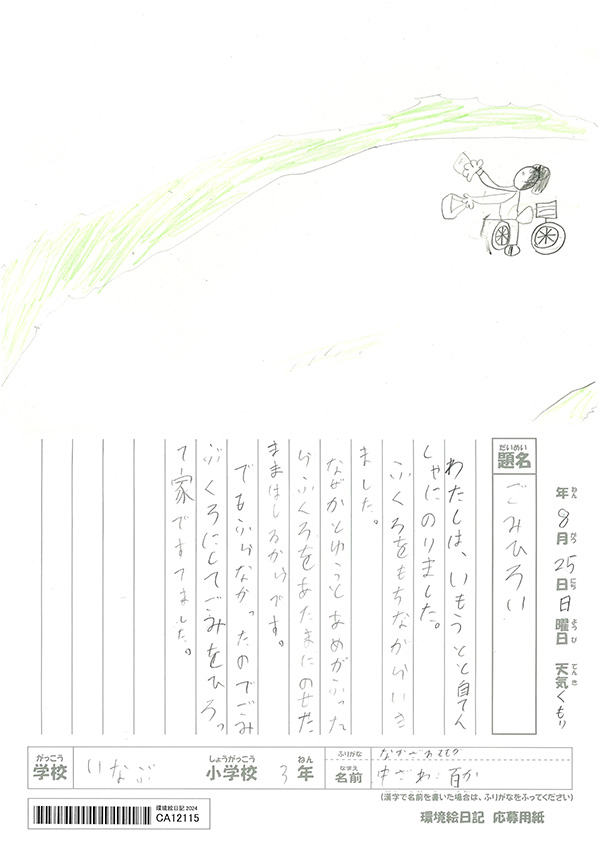 年 8月 25日 日曜日 天気 くもり
ねん がつ にち ようび てんき
だいめい
題名
ごみひろい
わたしは、いもうとと自てん
しゃにのりました。
ふくろをもちながらいき
ました。
なぜかとゆうとあめがふった
らふくろをあたまにのせた
ままはしるからです。
でもふらなかったのでごみ
ぶくろにしてごみをひろっ
て家ですてました。
がっこう
学校
いなぶ
しょうがっこう
小学校
3
ねん
年
ふりがな
なまえ
名前
中ざわ 百か
(漢字で名前を書いた場合は、ふりがなをふってください)
環境絵日記 2024
CA12115
環境絵日記 応募用紙